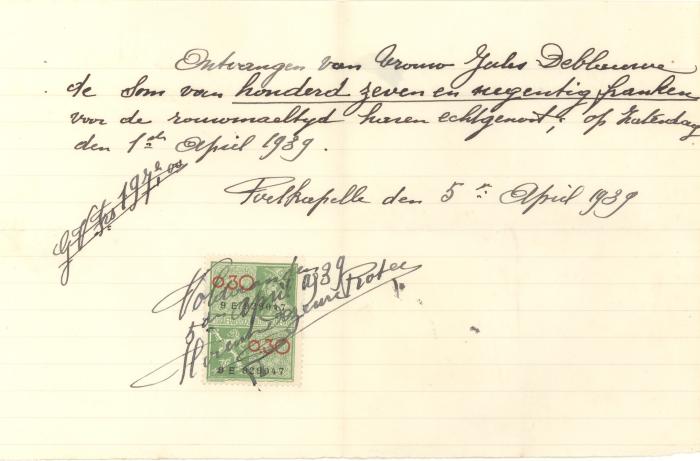 Ontvangen van Vrouw Jules Deblauwe
de som van honderd zeven en negentig franken
voor de rouwmaeltyd haren echtgenoot, op Zaterdag
den 1st April 1939.
Poelkapelle den 5n April 1939
197,00
0,30
9 E 829047
5 April 1939
Florent
0,30
9 E 829047